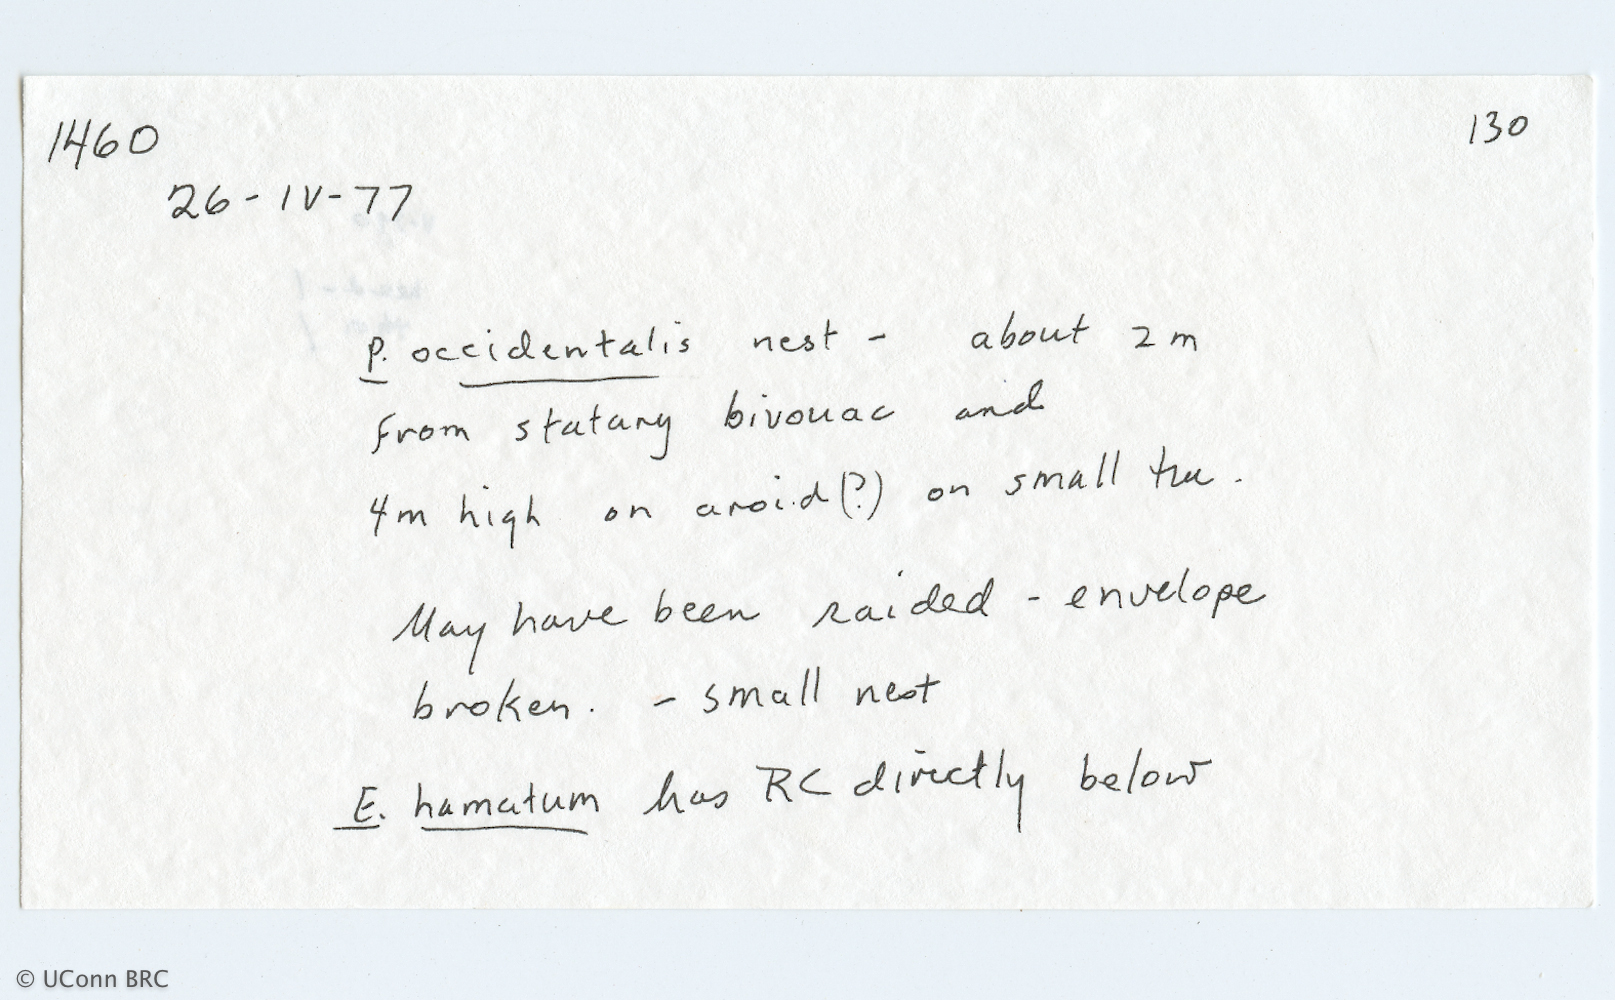 1460
130
26-IV-77
P. occidentalis nest - about 2 m
from statary bivouac and
4m high on aroid(?) on small tree.
May have been raided - envelope
broken. - small nest
E. hamatum has RC directly below
© UConn BRC